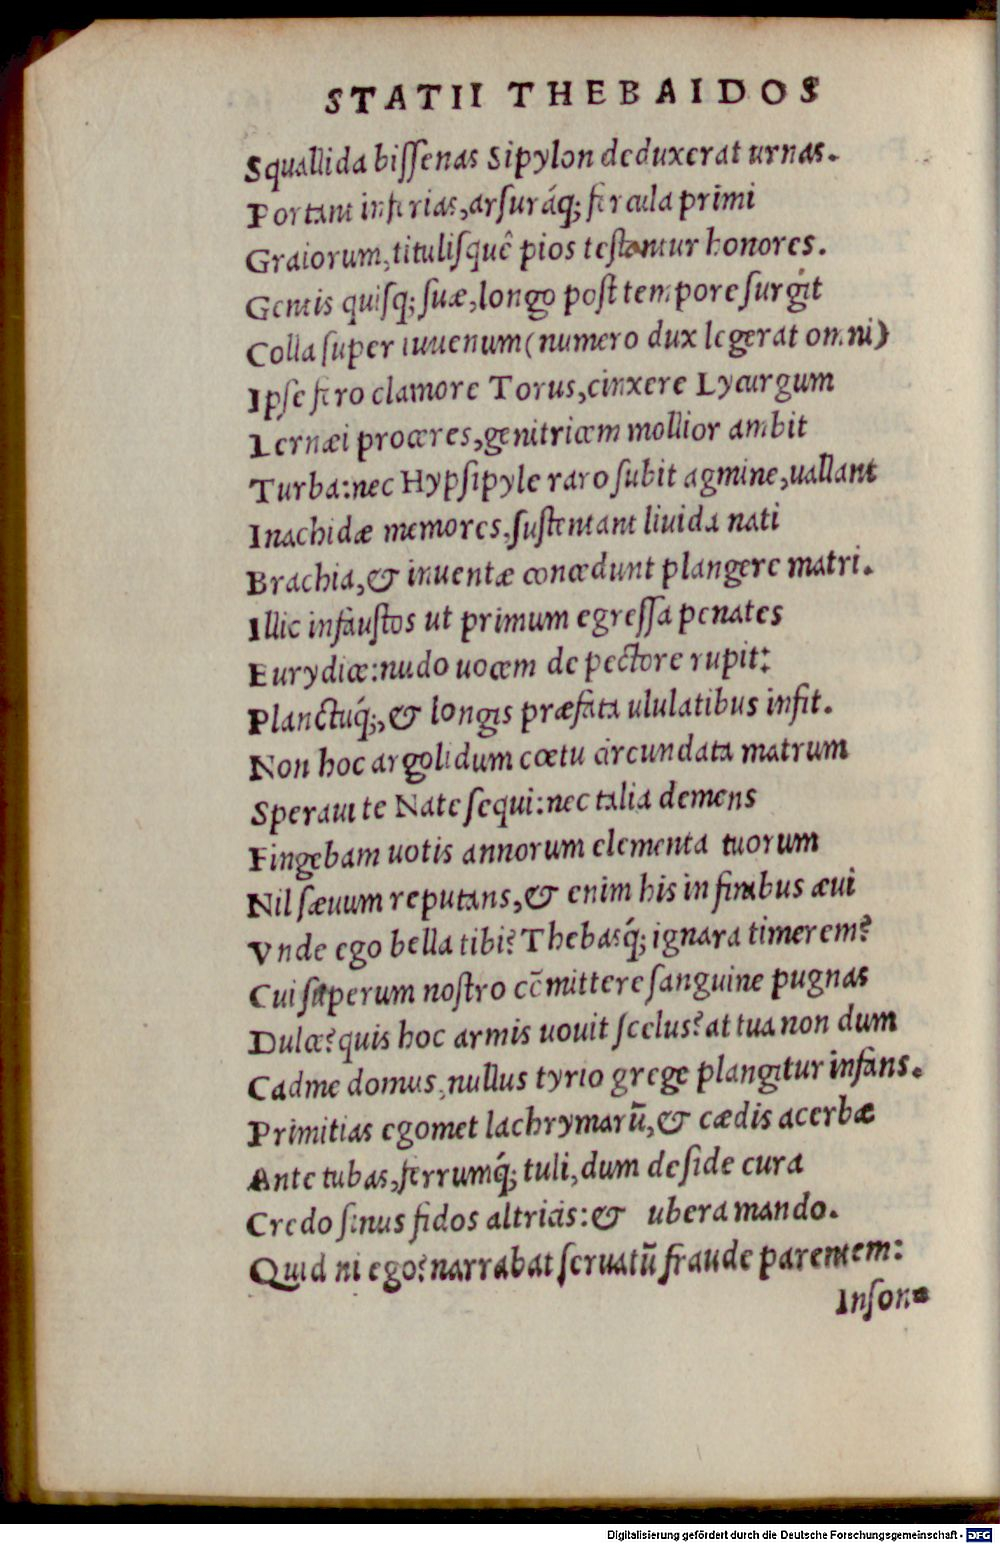 STATII THEBAIDOS
Squallida bissenas Sipylon deduxerat urnas.
Portant inferias, arsuráq; fercula primi
Graiorum, titulisquê pios testantur honores.
Gentis quisq; suæ, longo post tempore surgit
Colla super iuuenum (numero dux legerat omni)
Ipse fero clamore Torus, cinxere Lycurgum
Lernæi proceres, genitricem mollior ambit
Turba: nec Hypsipyle raro subit agmine, uallant
Inachidæ memores, sustentant liuida nati
Brachia, & inuentæ concedunt plangere matri.
Illic infaustos ut primum egressa penates
Eurydice: nudo uocem de pectore rupit:
Planctuq́;, & longis præfata ululatibus infit.
Non hoc argolidum cœtu circundata matrum
Speraui te Nate sequi: nec talia demens
Fingebam uotis annorum elementa tuorum
Nil sæuum reputans, & enim his in finibus æui
Vnde ego bella tibi? Thebasq́; ignara timerem?
Cui superum nostro cōmittere sanguine pugnas
Dulce? quis hoc armis uouit scelus? at tua non dum
Cadme domus, nullus tyrio grege plangitur infans.
Primitias egomet lachrymarū, & cædis acerbæ
Ante tubas, ferrumq́; tuli, dum deside cura
Credo sinus fidos altricis: & ubera mando.
Quid ni ego? narrabat seruatū fraude parentem:
Inson=
Digitalisierung gefördert durch die Deutsche Forschungsgemeinschaft - DFG